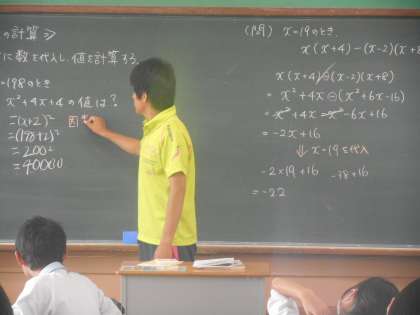 の計算≫
に数を代入し、値を計算する。
x=198のとき
x²+4x+4の値は?
=(x+2)²
因
=(198+2)²
=200²
=40000
(問) x=19のとき、
x(x+4)-(x-2)(x+8
x(x+4)-(x-2)(x+8)
=x²+4x-(x²+6x-16)
=x²+4x-x²-6x+16
=-2x+16
⇓ x=19を代入
-2×19+16
-38+16
=-22